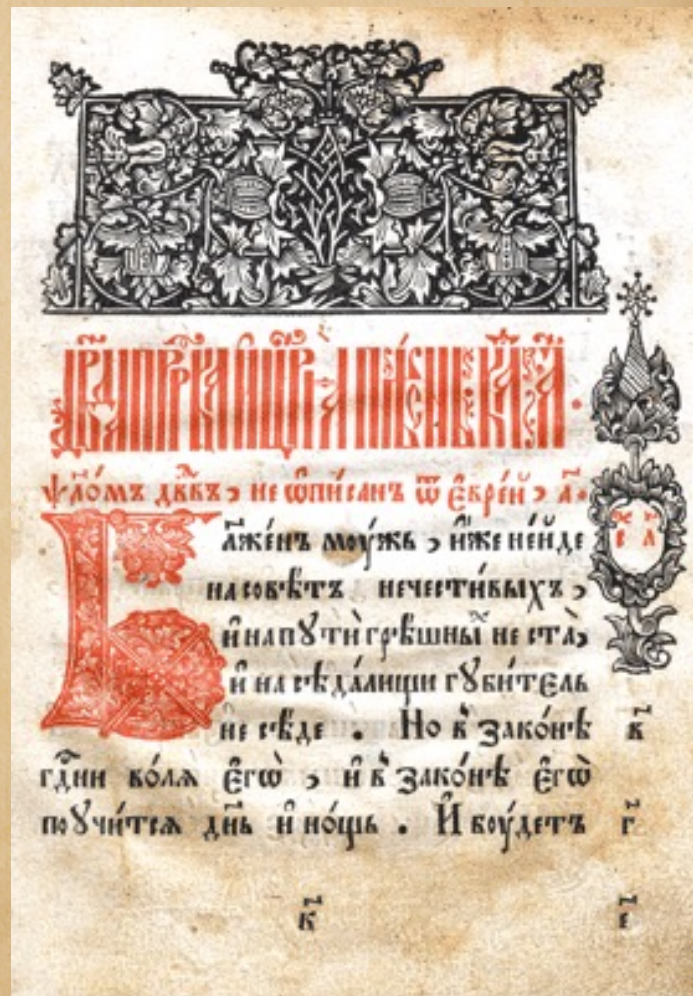 ц҃рѧ прⷪ҇рка и цр҃ѧ пѣснь к҃а
ѱало́мъ дв҃дъ, не ѡпи́санъ ѿ є҆врє́й, а҃.
Бл҃же́нъ моу́жъ, и҆́же не и҆́де
на совѣ́тъ нечести́выхъ,
и҆ на пути̑ грѣ́шныⷯ не ста̀,
и҆ на сѣда́лищи гꙋби́тєль
не сѣ́де. Но в̾ зако́нѣ в҃
гдⷭ҇ни во́лѧ є҆гѡ̀, и҆ в̾ зако́нѣ є҆гѡ̀
поꙋчи́тсѧ дн҃ь и҆ но́щь. И҆ боу́детъ г҃
к҃ є҃